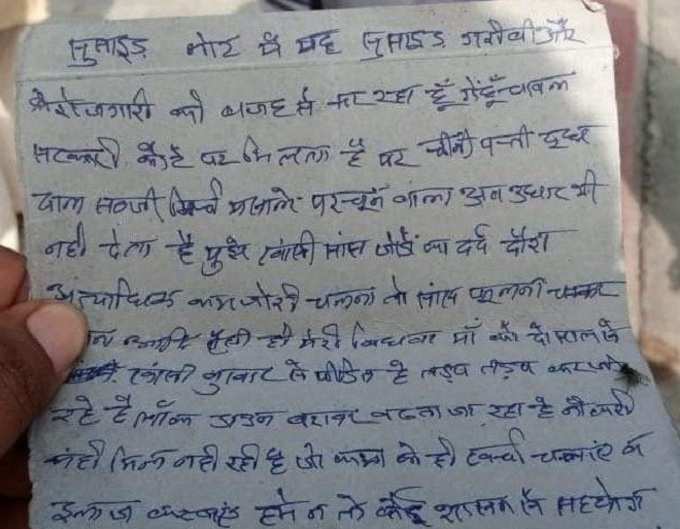 सुसाइड नोट में यह सुसाइड गरीबी और
बेरोजगारी की वजह से कर रहा हूँ गेहूँ चावल
सरकारी कोटे पर मिलता है पर चीनी पत्ती दूध
दाल सब्जी मिर्च मसाले परचून वाला अब उधार भी
नही देता है मुझे खांसी सांस जोडों का दर्द दौरा
अत्याधिक कमजोरी चलना तो सांस फूलना चक्कर
आदि है मेरी विधवा माँ को दो साल से
खांसी बुखार से पीडित है तडप तडप कर जी
रहे है लॉक डाउन बराबर बढता जा रहा है नौकरी
कही मिल नही रही है जो काम करके खर्चा चलाएं व
इलाज कराएं हमे न तो कोई शासन से सहयोग